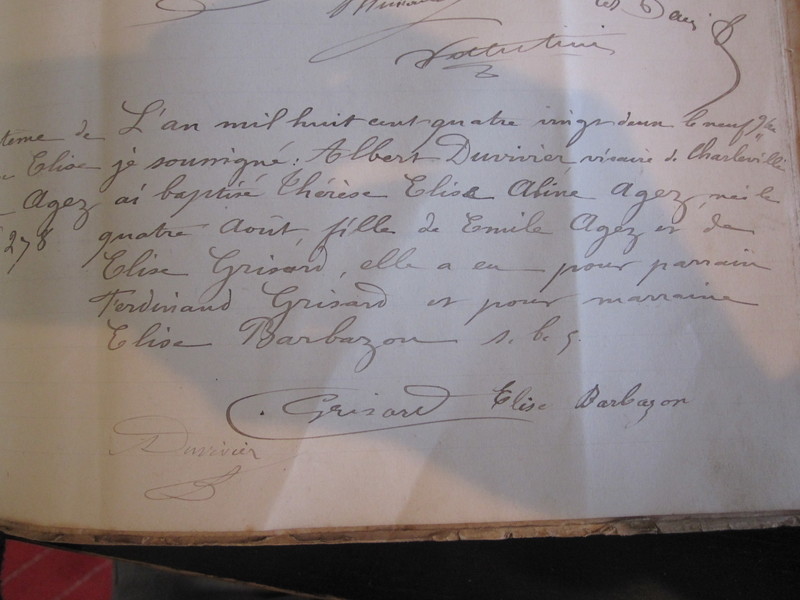 L'an mil huit cent quatre vingt deux le neuf 7bre
je soussigné: Albert Duvivier vicaire de Charleville
ai baptisé Thérèse Elise Aline Agez, née le
quatre Août, fille de Emile Agez et de
Elise Grisard, elle a eu pour parrain
Ferdinand Grisard et pour marraine
Elise Barbazon s. b. s.
tème de
Elise
Agez
278
Grisard Elise Barbazon
Duvivier